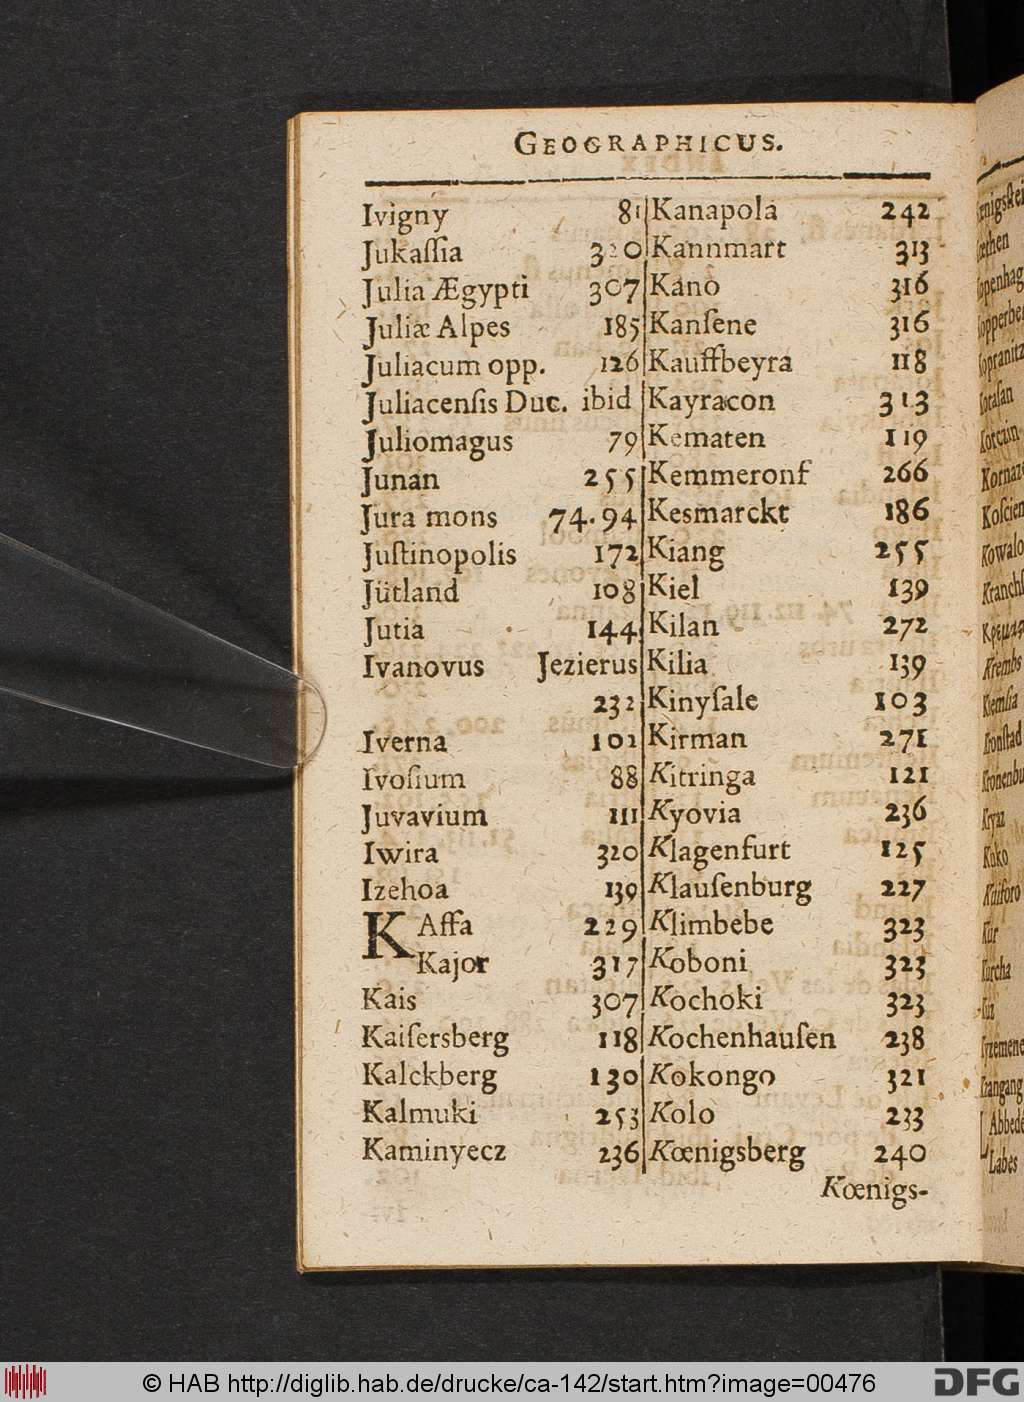 GEOGRAPHICUS.
Ivigny 81
Jukaſſia 320
Julia Ægypti 307
Juliæ Alpes 185
Juliacum opp. 126
Juliacenſis Duc. ibid
Juliomagus 79
Junan 255
Jura mons 74.94
Juſtinopolis 172
Jütland 108
Jutia 144
Ivanovus Jezierus
232
Iverna 102
Ivoſium 88
Juvavium 111
Iwira 320
Izehoa 139
KAffa 229
Kajor 317
Kais 307
Kaiſersberg 118
Kalckberg 130
Kalmuki 253
Kaminyecz 236
Kanapola 242
Kannmart 313
Kano 316
Kanſene 316
Kauffbeyra 118
Kayracon 313
Kematen 119
Kemmeronf 266
Kesmarckt 186
Kiang 255
Kiel 139
Kilan 272
Kilia 139
Kinyſale 103
Kirman 271
Kitringa 121
Kyovia 236
Klagenfurt 125
Klauſenburg 227
Klimbebe 323
Koboni 323
Kochoki 323
Kochenhauſen 238
Kokongo 321
Kolo 233
Kœnigsberg 240
Kœnigs-
© HAB http://diglib.hab.de/drucke/ca-142/start.htm?image=00476
DFG